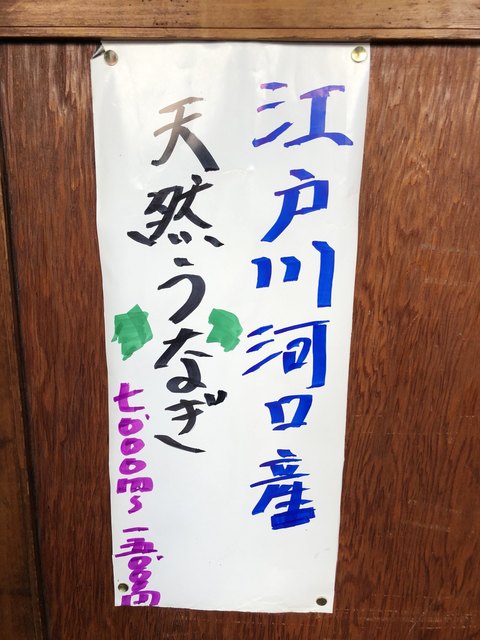 江戸川河口産
天然うなぎ
七、000円〜一五、000円